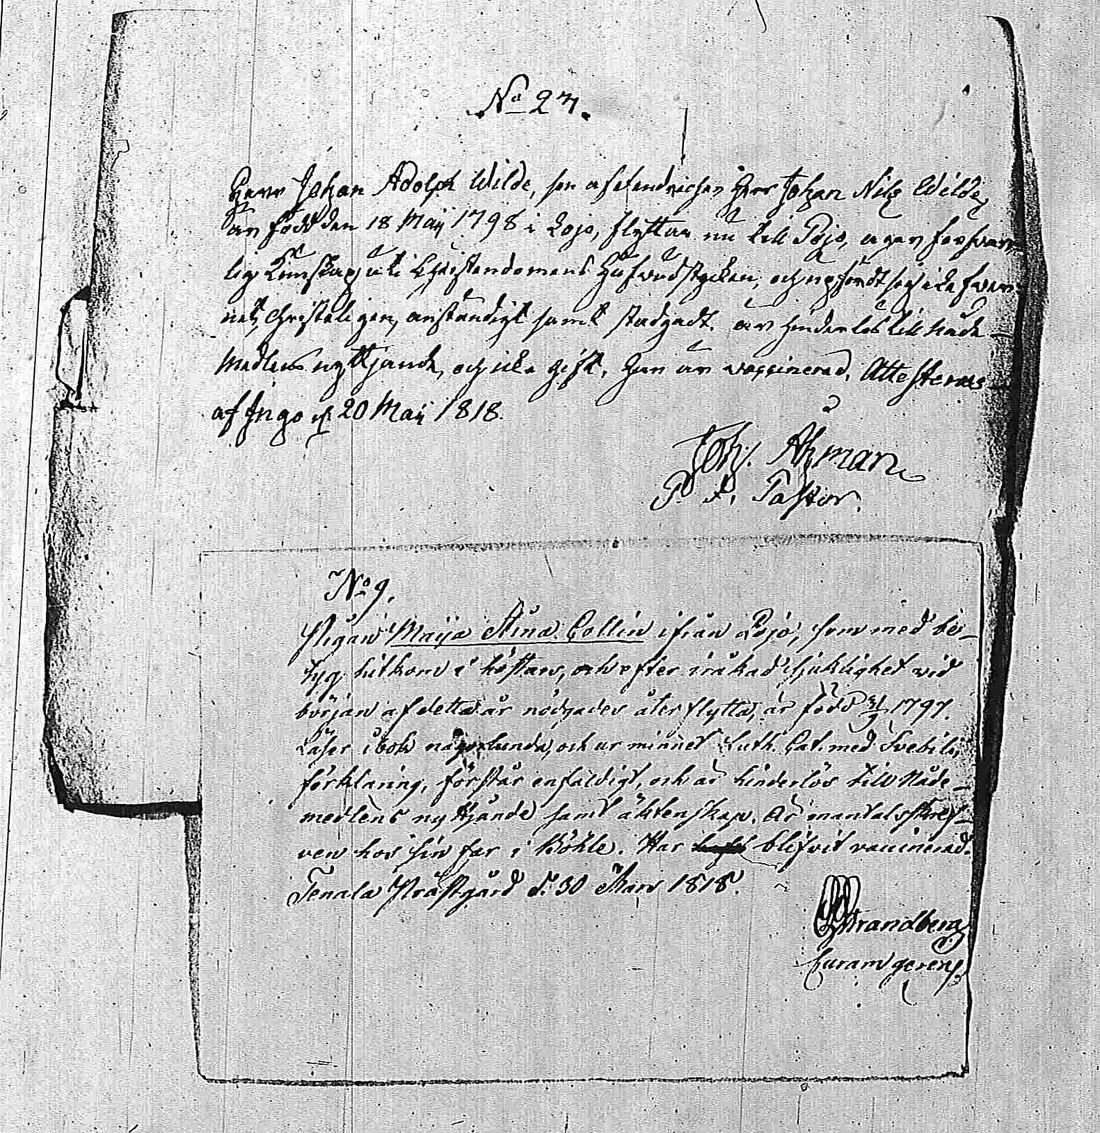 No 27.
Herr Johan Adolph Wilde, son af Fendrichen Herr Johan Nils Wilde,
är född den 18 Maij 1798 i Lojo, flyttar nu till Pojo, ägen försvar-
lig Kunskap uti Christendomens Hufwudstycken, och upfördt sig
net, Christeligen, anständigt samt stadgadt. är hinderlös till Nåde
medlens nyttjande, och icke gift. Han är vaccinerad. Attesteras
af Ingo d. 20 Maij 1818.
Joh. Åhman
P. Pastor.
No 9.
Pigan Maija Stina Collin ifrån Pojo, som med be-
tyg hitkom i höstas, och efter iråkad sjuklighet vid
början af detta år nödgades återflytta, är född 1797.
Läser i bok någorlunda, och ur minnet Luth. Cat. med Svebilii
förklaring, förstår enfaldigt, och är hinderlös till Nåde-
medlens nyttjande samt äktenskap. Är mantalsskref-
ven hos sin far i Böhle. Har blifvit vaccinerad.
Tenala Prästgård d. 30 Mars 1818.
Strandberg
Curam gerens.